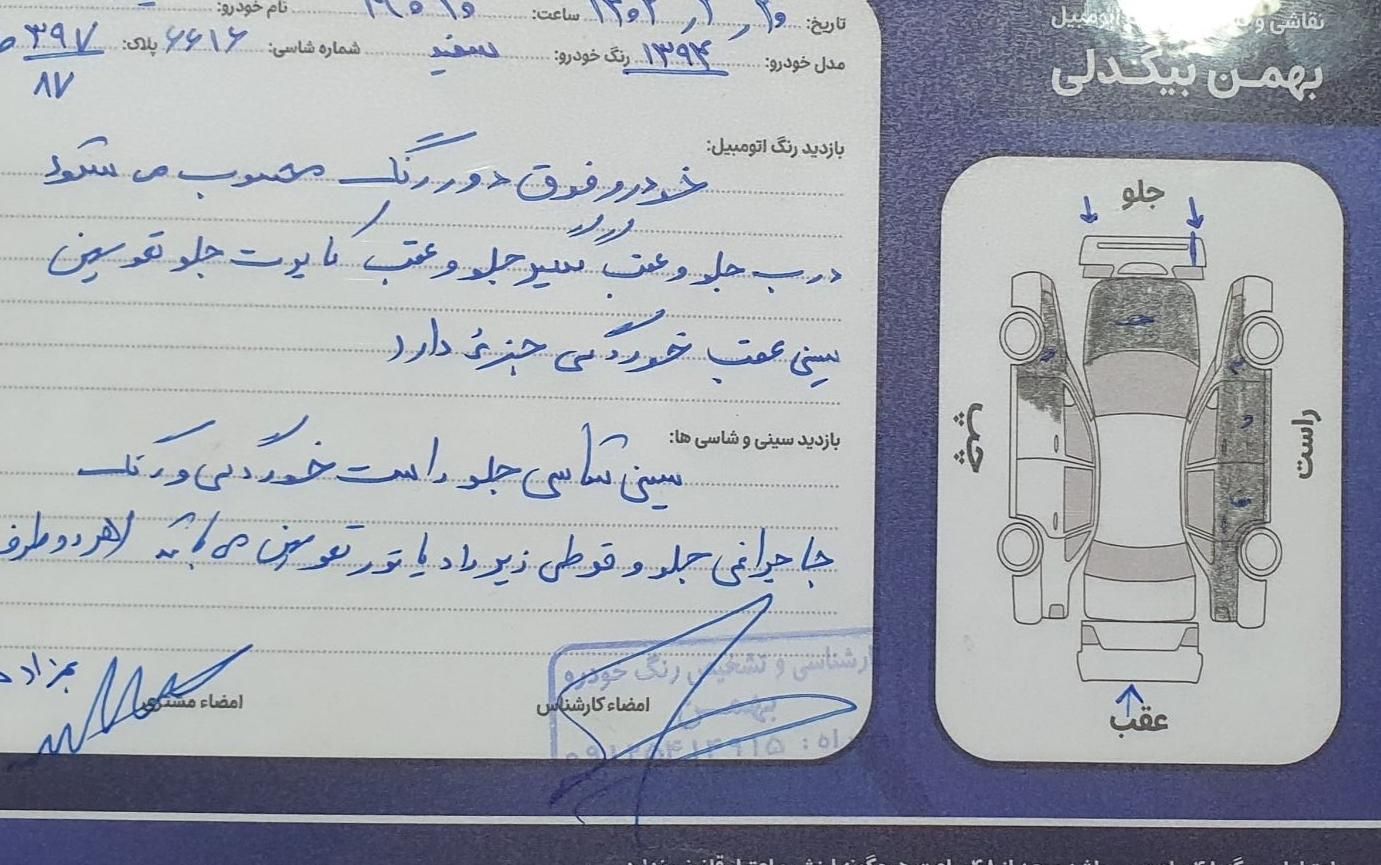 تاریخ: ۱۴۰۲ ساعت: نام خودرو:
مدل خودرو: ۱۳۹۴ رنگ خودرو: سفید شماره شاسی: ۶۶۱۶ پلاک: ۳۹۷
۸۷
بازدید رنگ اتومبیل:
خودرو فوق دور رنگ محسوب می شود
درب جلو و عقب گلگیر جلو و عقب کاپوت جلو تعویض
سینی عقب خوردگی جزئی دارد
بازدید سینی و شاسی ها:
سینی شاسی جلو راست خوردگی و رنگ
جا چراغی جلو و قوطی زیر رادیاتور تعویض می باشد (هر دو طرف
امضاء کارشناس
امضاء مشتری
کارشناسی و تشخیص رنگ خودرو
بهمن
نقاشی و اتومبیل
بهمن بیگدلی
جلو
راست
چپ
عقب